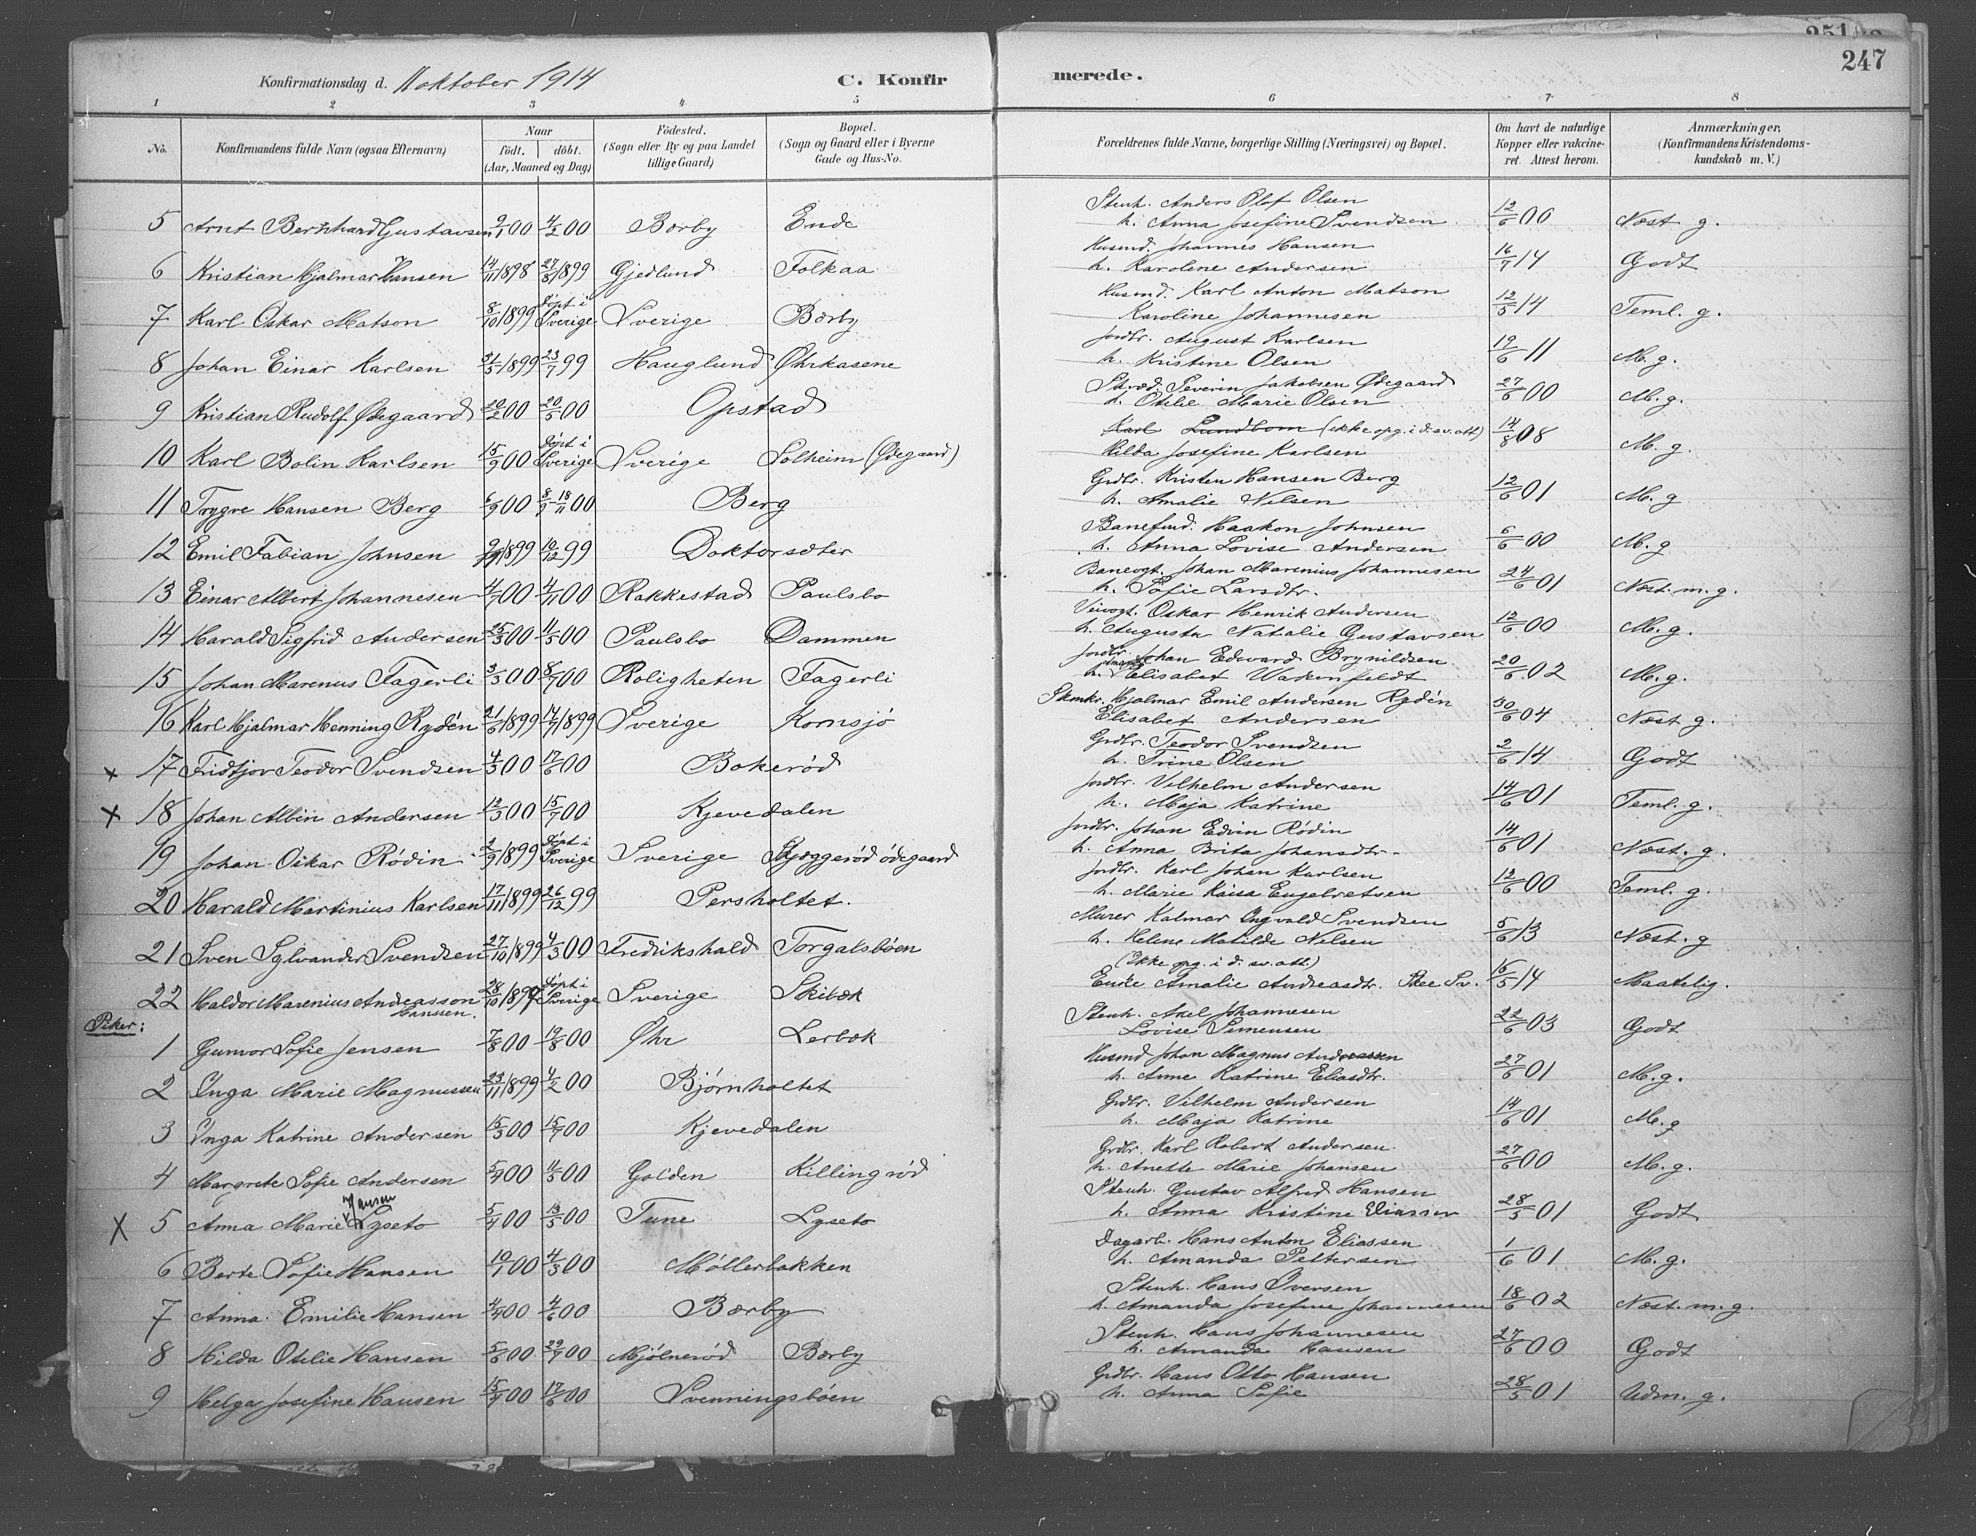 251
247
Konfirmationsdag d. 11 oktober 1914 C. Konfirmerede.
1 2 3 4 5 6 7 8
No. Konfirmandens fulde Navn (ogsaa Efternavn) Naar født, døbt. (Aar, Maaned og Dag) Födested. (Sogn eller By og paa Landet tillige Gaard) Bopæl. (Sogn og Gaard eller i Byerne Gade og Hus-No. Forældrenes fulde Navne, borgerlige Stilling (Næringsvei) og Bopæl. Om havt de naturlige Kopper eller vakcineret. Attest herom. Anmærkninger, (Konfirmandens Kristendomskundskab m. V.)
5 Arnt Bernhard Gustavsen 9/1 00 4/2 00 Børby Ende Stenh. Anders Olof Olsen h. Anna Josefine Svendsen 12/6 00 Næst g.
6 Kristian Hjalmar Hansen 14/11 1898 27/8 1899 Gjedlund Folkaa Husmd. Johannes Hansen h. Karolene Andersen 16/7 14 Godt
7 Karl Oskar Matson 8/10 1899 døpt i Sverige Sverige Børby Husmd. Karl Anton Matson Karoline Johannesen 12/5 14 Teml. g.
8 Johan Einar Karlsen 31/5 1899 23/7 99 Hauglund Øhrkasene Jordbr. August Karlsen h. Kristine Olsen 19/6 11 M. g.
9 Kristian Rudolf Ødegaard 20/2 00 20/5 00 Opstad Severin Jakobsen Ødegaard h. Otilie Marie Olsen 27/6 00 M. g.
10 Karl Bolin Karlsen 15/9 00 døpt i Sverige Sverige Solheim (Ødegaard) Karl Lundbom (ikke opg. i d. sv. att) Hilda Josefine Karlsen 14/8 08 M. g.
11 Trygve Hansen Berg 6/9 00 8/9 18/11 00 Berg Grdbr. Kristen Hansen Berg h. Amalie Nilsen 12/6 01 M. g
12 Emil Fabian Johnsen 1899 10/12 99 Doktorsæter Banefmd. Haakon Johnsen h. Anna Lovise Andersen 6/6 00 M. g
13 Einar Albert Johannesen 4/7 00 4/11 00 Rakkestad Paulsbo Banevogt. Johan Marenius Johannesen h. Sofie Larsdtr. 24/6 01 Næst. m. g.
14 Harald Sigfrid Andersen 15/3 00 4/5 00 Paulsbo Dammen Veivogt. Oskar Henrik Andersen h. Augusta Natalie Gustavsen 12/6 00 M. g.
15 Johan Marenus Fagerli 3/3 00 8/7 00 Roligheten Fagerli Jordbr. Johan Edvard Brynildsen h. Elisabet Wadenfeldt 20/6 02 M. g.
16 Karl Hjalmar Henning Rydén 21/6 1899 14/7 1899 Sverige Kornsjø Hjalmar Emil Andersen Rydén Elisabet Andersen 30/6 04 Næst g.
x 17 Fridtjov Teodor Svendsen 4/3 00 17/6 00 Bokerød Grdbr. Teodor Svendsen h. Trine Olsen 2/6 14 Godt
x 18 Johan Albin Andersen 12/3 00 15/7 00 Kjevedalen Jordbr. Vilhelm Andersen h. Maja Katrine 14/6 01 Teml. g.
19 Johan Oskar Rödin 2/9 1899 døpt i Sverige Sverige Skjæggerød ødegaard Jordbr. Johan Edvin Rödin h. Anna Brita Johansdtr. 14/6 01 Næst. g.
20 Harald Martinius Karlsen 17/11 1899 26/12 99 Persholtet. Jordbr. Karl Johan Karlsen h. Marie Kaisa Engelretsen 12/6 00 Teml. g.
21 Sven Sylvander Svendsen 27/10 1899 4/3 00 Fredrikshald Torgalsbøen Murer Kalmar Ingvald Svendsen h. Helene Matilde Nilsen 5/6 13 Næst. g
22 Haldor Marenius Andreasson Hanssen. 28/10 1899 døpt i Sverige Sverige Skibæk (Ikke opg. i d. sv. att.) Enke Amalie Andreasdtr. Skee Sv. 15/5 14 Maatelig.
Piker:
1 Gunvor Sofie Jensen 7/8 00 19/8 00 Øhr Lerbæk Stenh. Axel Johannesen Lovise Simensen 22/6 03 Godt
2 Inga Marie Magnussen 23/11 1899 4/2 00 Bjørnholtet Husmd Johan Magnus Andreassen h. Anne Katrine Eliasdtr. 27/6 01 M. g.
3 Inga Katrine Andersen 15/3 00 15/7 00 Kjevedalen Grdbr. Vilhelm Andersen h. Maja Katrine 14/6 01 M. g
4 Margrete Sofie Andersen 5/4 00 4/5 00 Golden Killingrød Grdbr. Karl Robert Andersen. h. Anette Marie Johansen 27/6 00 M. g.
x 5 Anna Marie Hansen Lyseto 5/4 00 13/5 00 Tune Lyseto Stenh. Gustav Alfred Hansen h. Anna Kristine Eliassen 28/5 01 Godt
6 Berte Sofie Hansen 19/1 00 4/3 00 Møllerbakken Dagarb. Hans Anton Eliassen h. Amanda Pettersen 1/6 01 M. g.
7 Anna Emilie Hansen 4/4 00 4/6 00 Bærby Stenh. Hans Iversen h. Amanda Josefine Johannesen 18/6 02 Næst. m. g.
8 Hilda Otilie Hansen 5/6 00 29/7 00 Mjölnerød Bærby Stenh. Hans Johannesen h. Amanda Hansen 27/6 00 Godt
9 Helga Josefine Hansen 15/4 00 17/6 00 Svenningsbøen Grdbr. Hans Otto Hansen h. Anna Sofie 28/5 01 Udm. g.